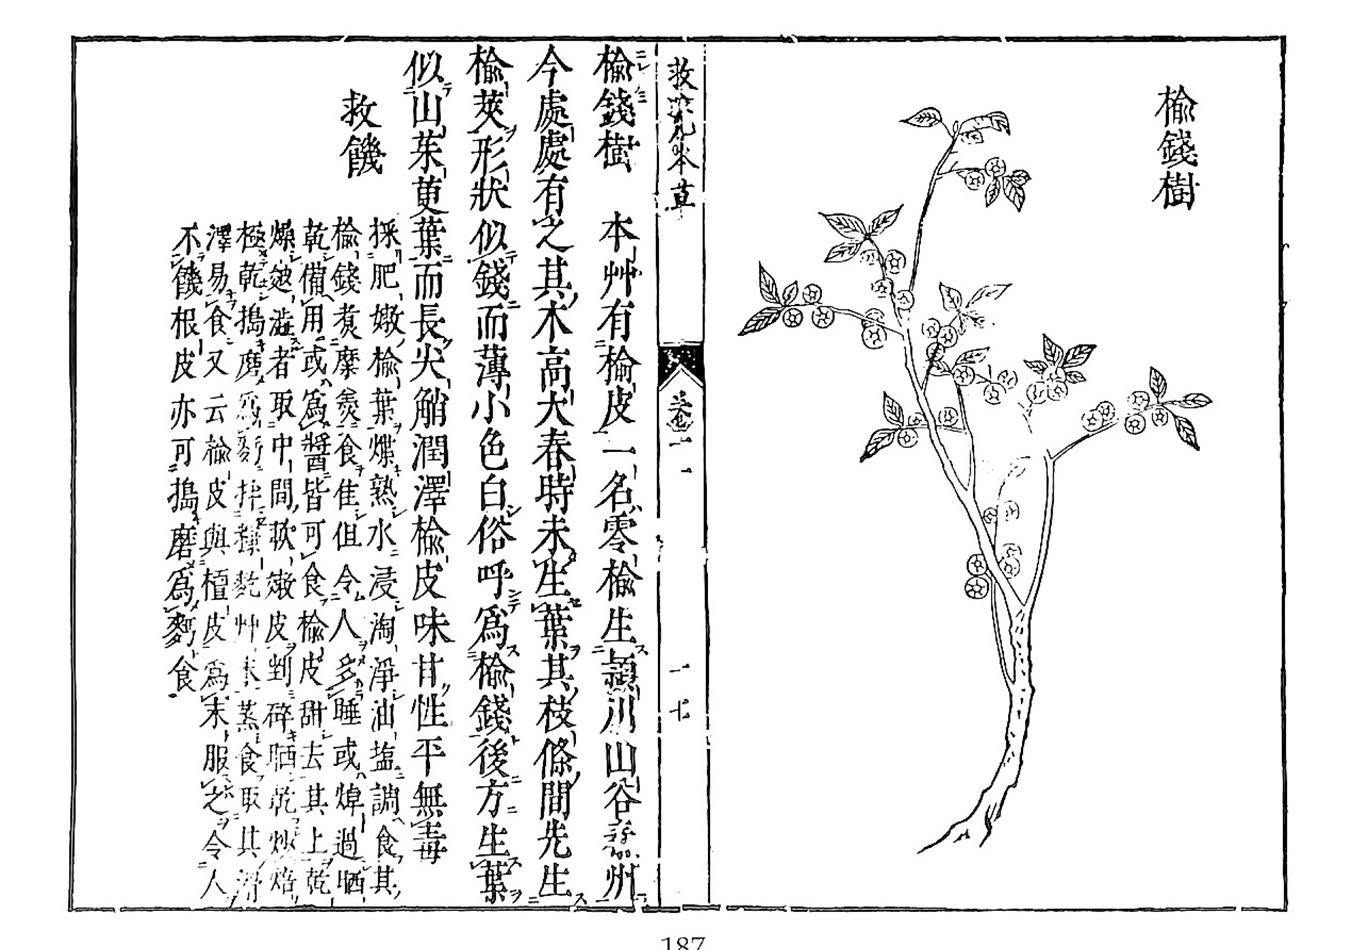 榆錢樹
救荒本草
卷
一
一七
榆錢樹　本艸有榆皮一名零榆生潁川山谷秦州
今處處有之其木高大春時未生葉其枝條間先生
榆莢形狀似錢而薄小色白俗呼爲榆錢後方生葉
似山茱萸葉而長尖艄潤澤榆皮味甘性平無毒
救饑
採肥嫩榆葉煠熟水浸淘淨油塩調食其
榆錢煮糜羹食佳但令人多睡或焯過晒
乾備用或爲醬皆可食榆皮甜去其上乾
燥皴澁者取中間軟嫩皮剉碎晒乾炒焙
極乾搗磨爲麪拌糠麧艸末蒸食取其滑
澤易食又云榆皮與檀皮爲末服之令人
不饑根皮亦可搗磨爲麪食
187